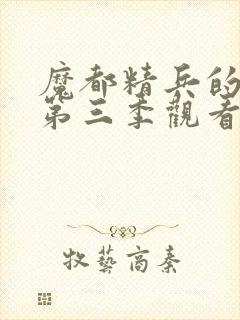 魔都精兵的
第三季觀看
牧藝高秦